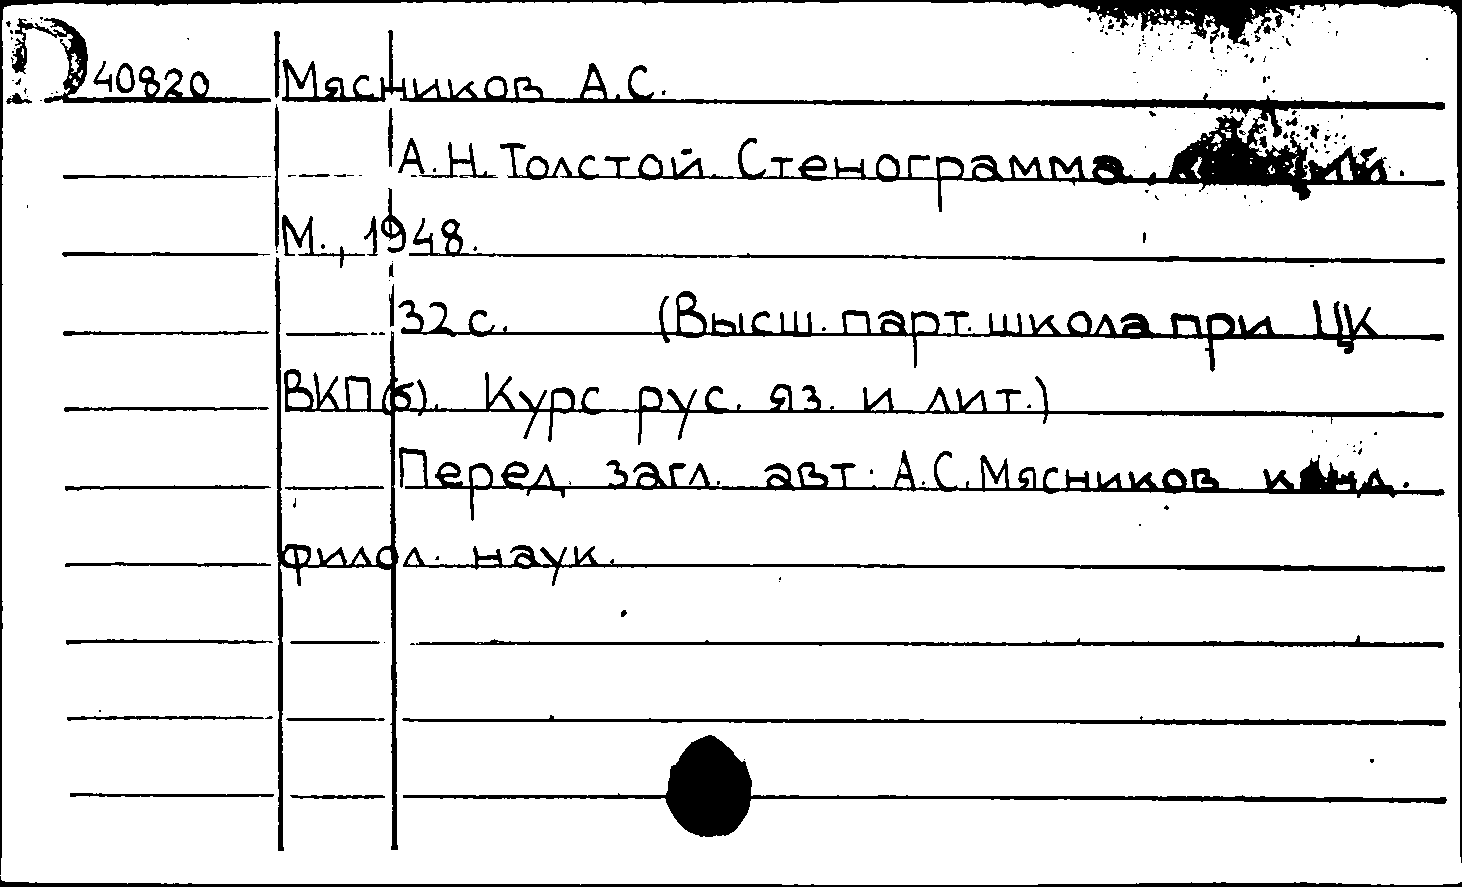 D 40820 Мясников А.С.
А.Н. Толстой. Стенограмма
М., 1948.
32 с. (Высш. парт. школа при ЦК
ВКП(б). Курс рус. яз. и лит.)
Перед загл. авт.: А.С. Мясников канд.
филол. наук.